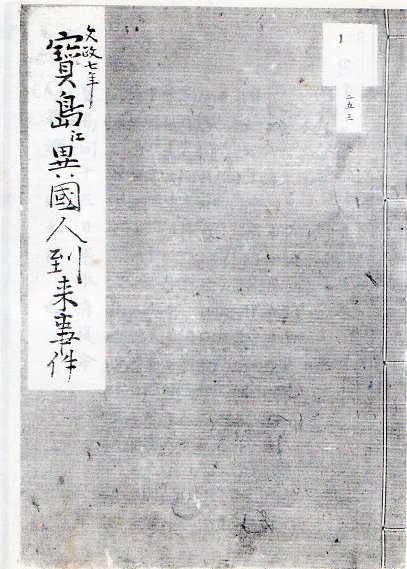 文政七年
寳島江異國人到来事件
二五三